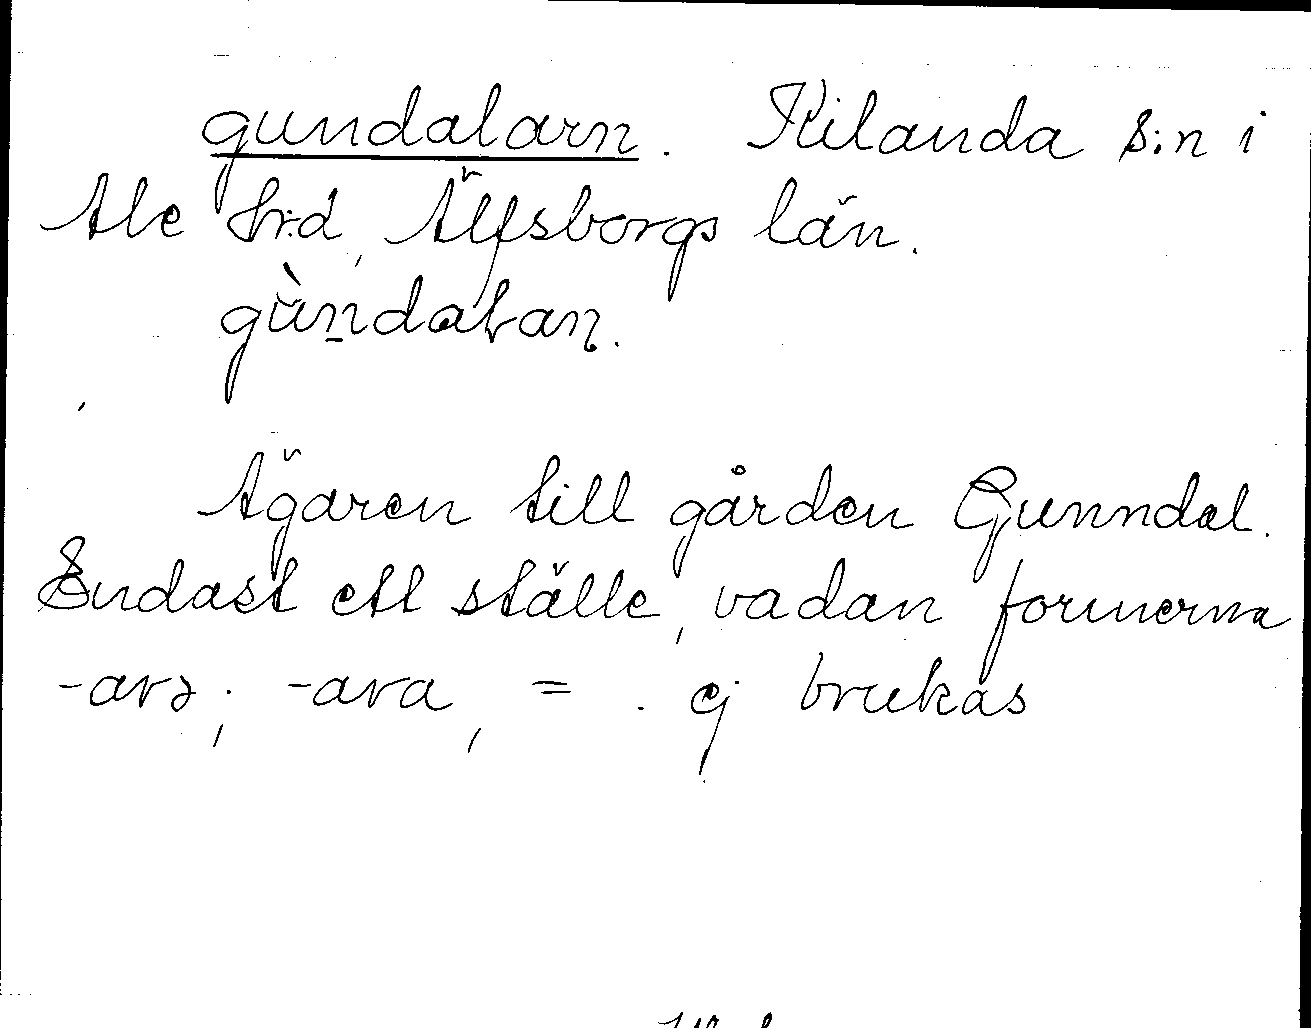 gundalarn. Kilanda s:n i
Ale h:d, Älfsborgs län.
gùndaɫan.
Ägaren till gården Gunndal.
Endast ett ställe, vadan formerna
-arə; -ara, = . ej brukas